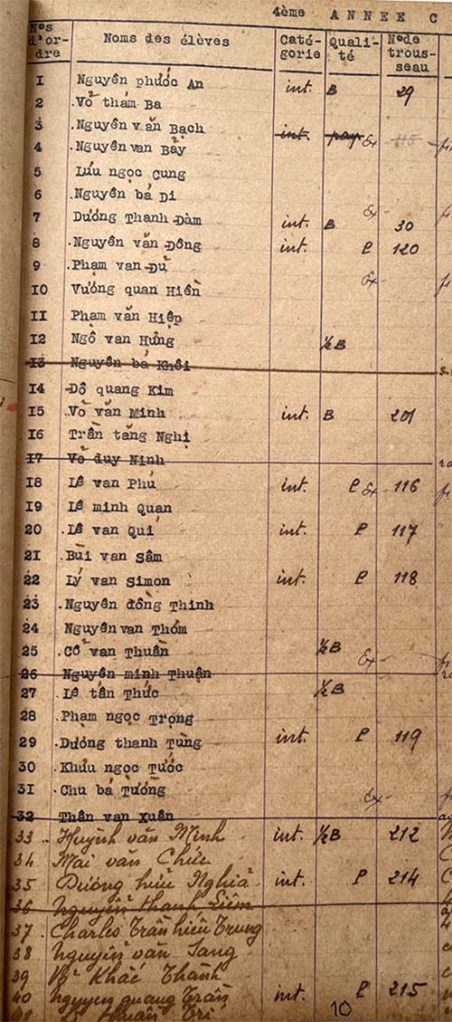 4ème ANNEE C
Nos d'or-dre Noms des élèves Caté-gorie Quali-té No de trous-seau
1 Nguyên phước An int. B 29
2 Võ thâm Ba
3 Nguyên văn Bạch int. pay Ex 115
4 Nguyên van Bảy
5 Lưu ngọc Cung
6 Nguyên bá Di
7 Dương Thanh Đàm int. B 30
8 Nguyên văn Đông int. P 120
9 Phạm van Dư Ex
10 Vương quan Hiên
11 Phạm văn Hiệp
12 Ngô van Hưng ½B
13 Nguyên bá Khôi
14 Dô quang Kim
15 Võ văn Minh int. B 201
16 Trân tăng Nghị
17 Võ duy Ninh
18 Lê van Phú int. P Ex 116
19 Lê minh Quan
20 Lê van Quí int. P 117
21 Bùi van Sâm
22 Lý van Simon int. P 118
23 Nguyên đông Thinh
24 Nguyên van Thơm
25 Cô van Thuân ½B
26 Nguyên minh Thuận Ex
27 Lê tân Thức ½B
28 Phạm ngọc Trọng
29 Dương thanh Tùng int. P 119
30 Khưu ngọc Tước
31 Chu bá Tương Ex
32 Thân van Xuân
33 Huỳnh văn Minh int. ½B 212
34 Mai văn Chức
35 Dương hữu Nghiã int. P 214
36 Nguyễn thanh Liêm
37 Charles Trần hiếu Trung
38 Nguyễn văn Sang
39 Khắc Thành
40 Nguyen quang Trân int. P 215
10